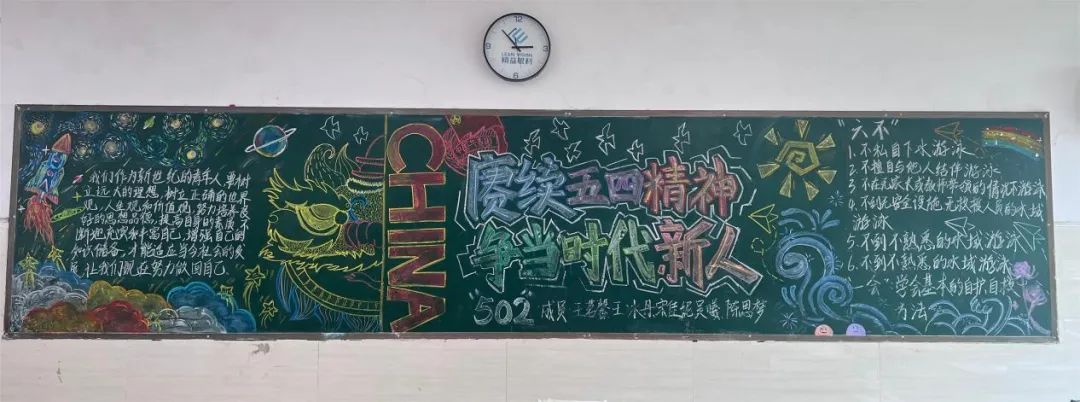 12
3
6
9
精益眼科
我们作为新世纪的青年人,要树
立远大的理想,树立正确的世界
观、人生观和价值观,努力培养良
好的思想品德,提高自身的素质,不
断地充实和丰富自己,增强自己的
知识储备,才能适应当今社会的发
展,让我们 在努力做 自己
CHINA
赓续五四精神
争当时代新人
"502" 成员 王 馨 王冰丹 宋佳妮 吴曦 陈思梦
"六不"
1. 不私自下水游泳
2. 不擅自与他人结伴游泳
3 不在无家长或教师带领的情况下游泳
4. 不到无安全设施、无救援人员的水域
游泳
5. 不到不熟悉的水域游泳
6. 不到不熟悉的水域游泳
一会" 学会基本的自护自救
方法